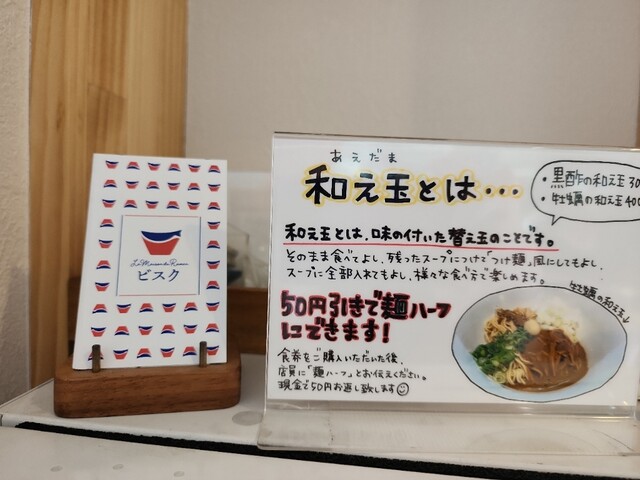 La Maison du Ramen
ビスク
あえだま
和え玉とは…
・黒酢の和え玉 30
・牡蠣の和え玉 400
和え玉とは、味の付いた替え玉のことです。
そのまま食べてよし、残ったスープにつけて「つけ麺」風にしてもよし、
スープに全部入れてもよし、様々な食べ方で楽しめます。
50円引きで麺ハーフ
にできます！
牡蠣の和え玉↓
食券をご購入いただいた後、
店員に「麺ハーフ」とお伝えください。
現金で50円お返し致します☺